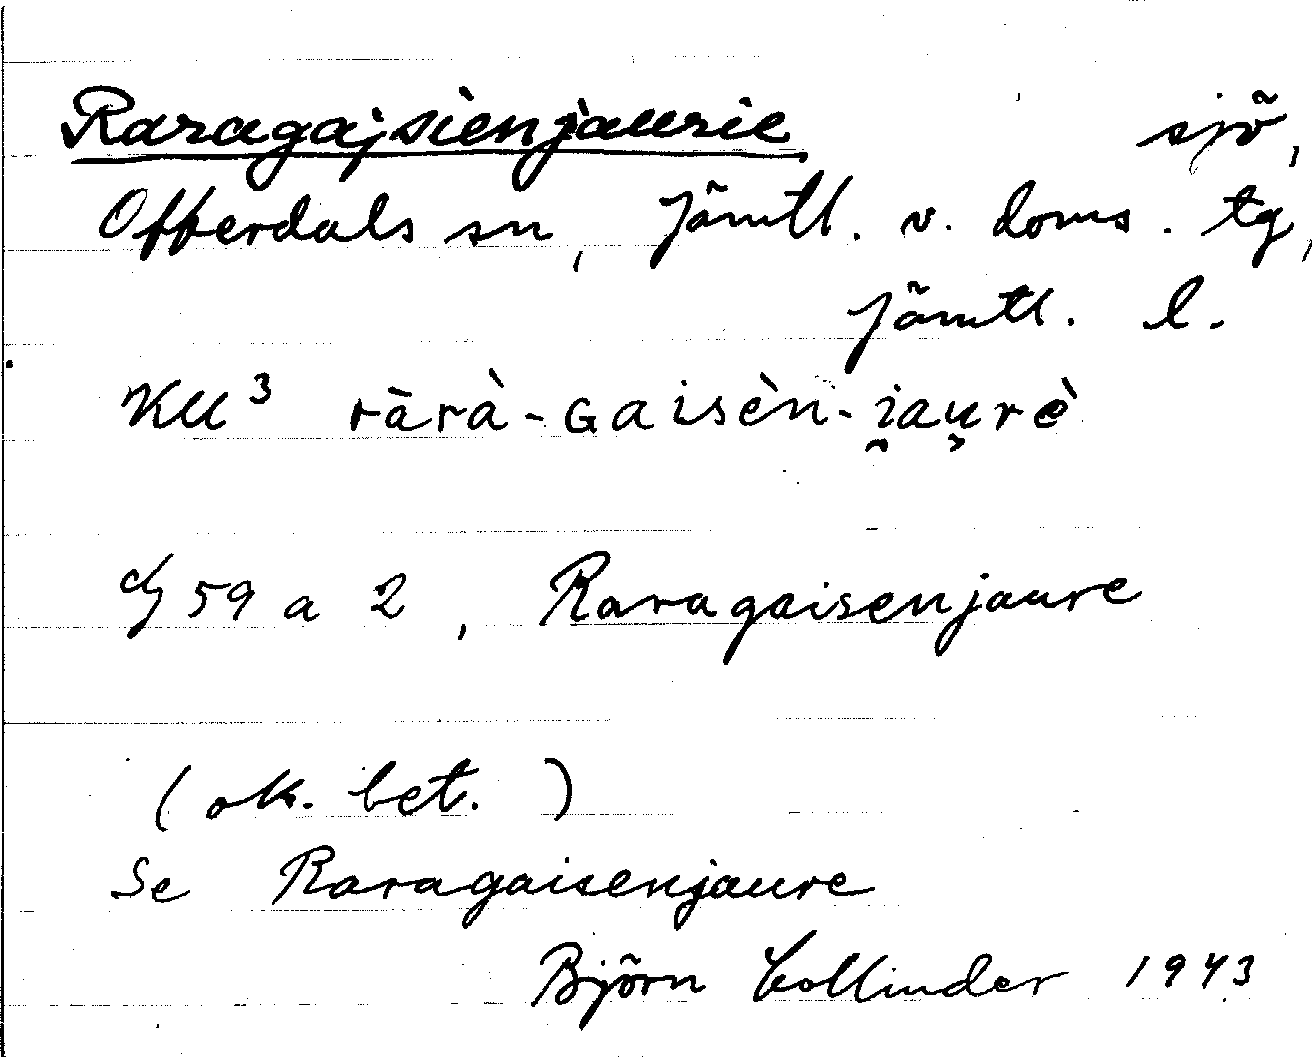 Raragajsienjaurie sjö,
Offerdals sn, Jämtl. v. doms. tg,
Jämtl. l.
KU³ rārà-Gaisèn-i̯au̯rè
59 a 2, Raragaisenjaure
(ok. bet. )
Se Raragaisenjaure
Björn Collinder 1943